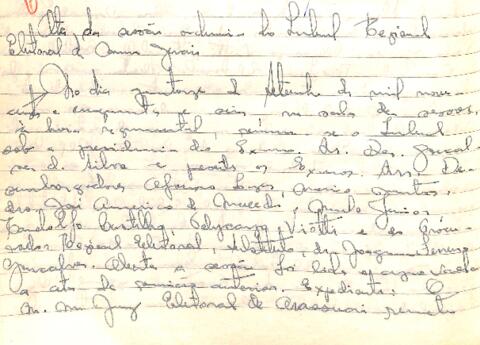 Ata da sessão ordinaria do Tribunal Regional
Eleitoral de Minas Gerais
No dia quatorze de Setembro de mil nove-
centos e cincoenta e seis na sala de sessões,
á hora regimental, reuniu-se o Tribunal
sob a presidencia do Exmo. Sr. Des. Gonçal-
ves da Silva e presentes os Exmos. Srs. De-
sembargadores Afonso Lages, Marcio
dro José Americo de Macedo, Junior,
Candolfo Castilho, e o Procu-
rador Regional Eleitoral, Substituto, dr. Joaquim
Gonçalves. Aberta a sessão foi lida e aprovada
a ata da sessão anterior. Expediente: O
m. m. Juiz Eleitoral de Arassuai remete